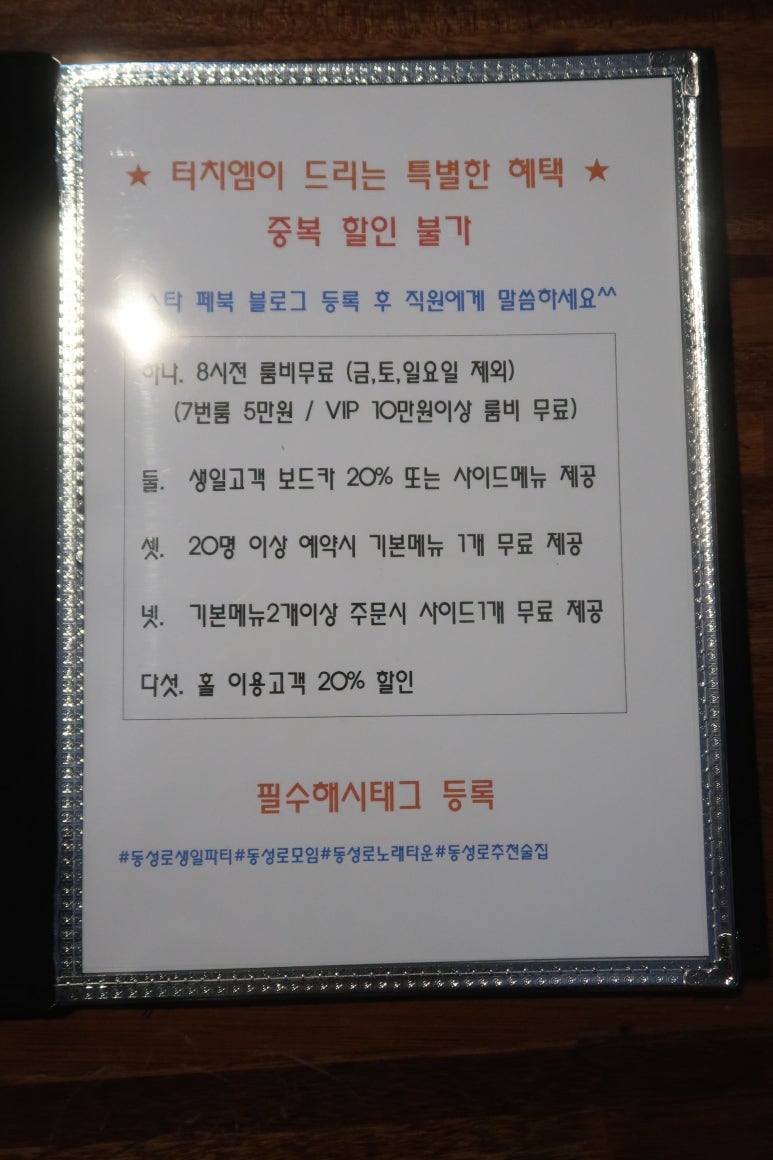 ★ 터치엠이 드리는 특별한 혜택 ★
중복 할인 불가
페북 블로그 등록 후 직원에게 말씀하세요^^
하나. 8시전 룸비무료 (금,토,일요일 제외)
(7번룸 5만원 / VIP 10만원이상 룸비 무료)
둘. 생일고객 보드카 20% 또는 사이드메뉴 제공
셋. 20명 이상 예약시 기본메뉴 1개 무료 제공
넷. 기본메뉴2개이상 주문시 사이드1개 무료 제공
다섯. 홀 이용고객 20% 할인
필수해시태그 등록
#동성로생일파티#동성로모임#동성로노래타운#동성로추천술집